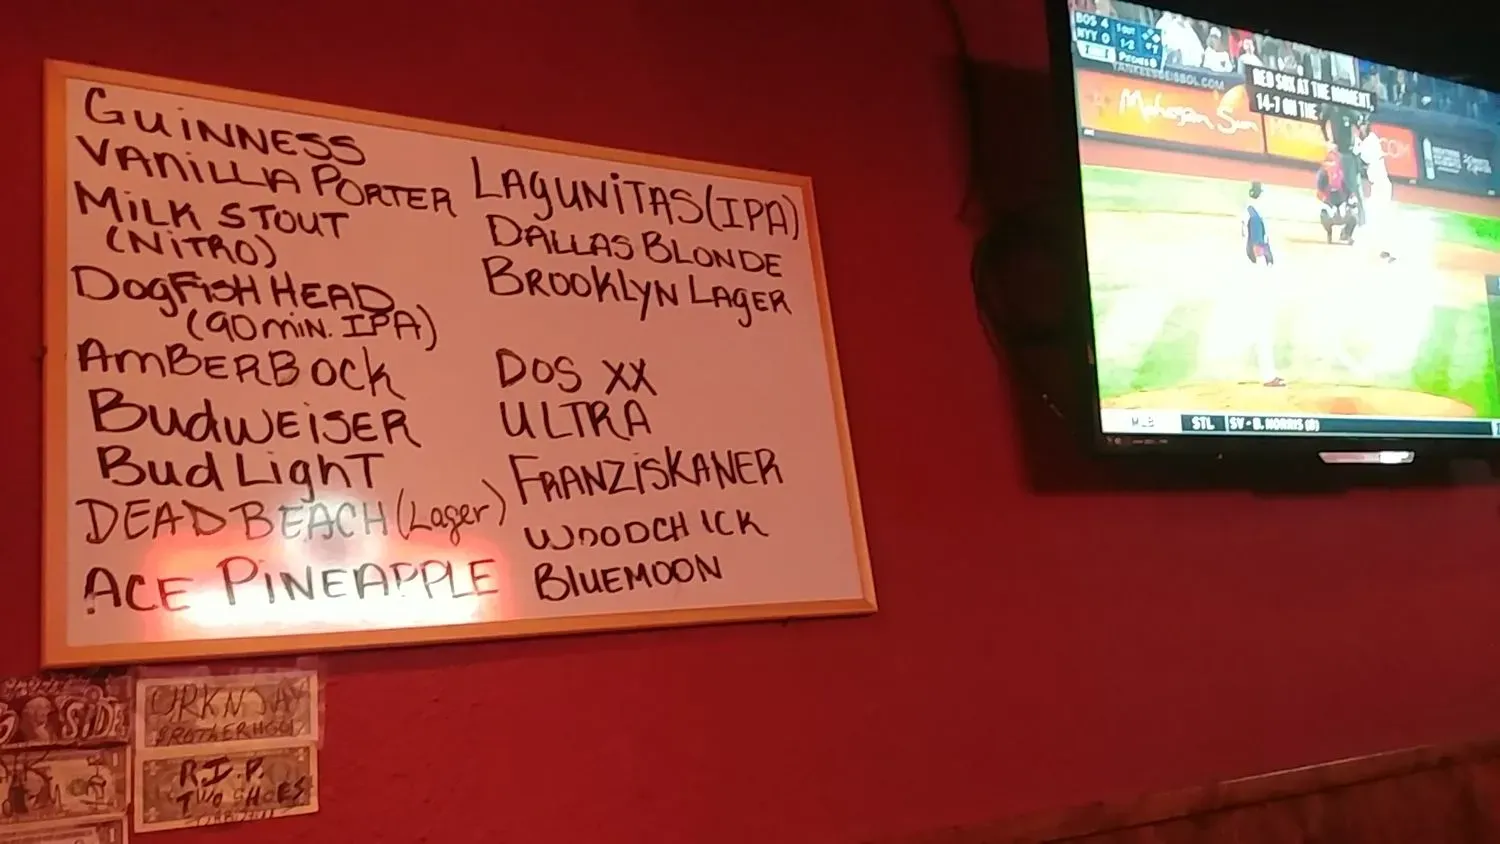 GUINNESS
VANILLA PORTER
MILK STOUT
(NITRO)
DOGFISH HEAD
(90 MIN. IPA)
AMBERBOCK
BUDWEISER
BUD LIGHT
DEAD BEACH (Lager)
ACE PINEAPPLE
LAGUNITAS (IPA)
DALLAS BLONDE
BROOKLYN LAGER
DOS XX
ULTRA
FRANZISKANER
WOODCHICK
BLUEMOON
BOS 4 1 OUT
NYY 0 1-2
YANKEESBEISBOL.COM
RED SOX AT THE MOMENT,
14-7 ON THE
Mohegan Sun
COM
MLB STL SV - B. NORRIS (8)
SIDE
BROTHERHOOD
R.I.P.
TWO SHOES